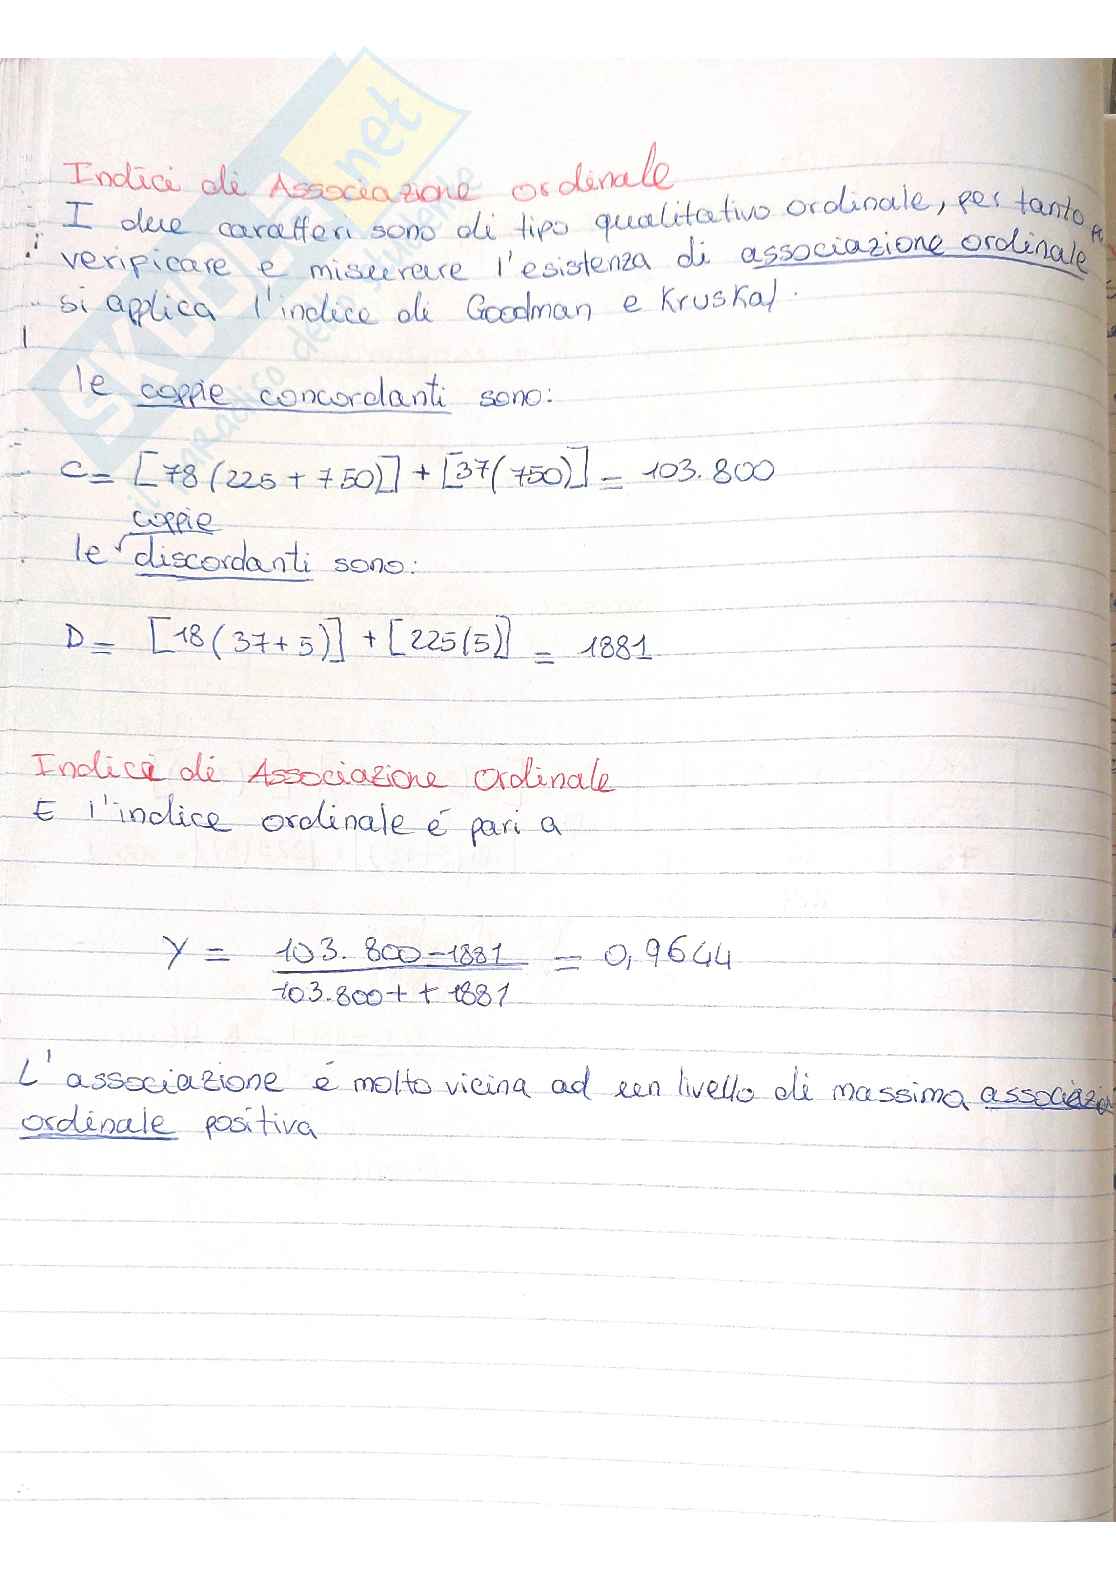 SKUOLA.net
il paradiso dello studente
Indici di Associazione ordinale
I due caratteri sono di tipo qualitativo ordinale, per tanto
verificare e misurare l'esistenza di associazione ordinale
si applica l'indice di Goodman e Kruskal.
le coppie concordanti sono:
C= [78(225+750)]+[37(750)] = 103.800
coppie
le √discordanti sono:
D= [18(37+5)]+[225(5)] = 1881
Indice di Associazione Ordinale
E l'indice ordinale é pari a
γ = 103.800-1881 = 0,9644
103.800++1881
L'associazione é molto vicina ad un livello di massima associazio
ordinale positiva